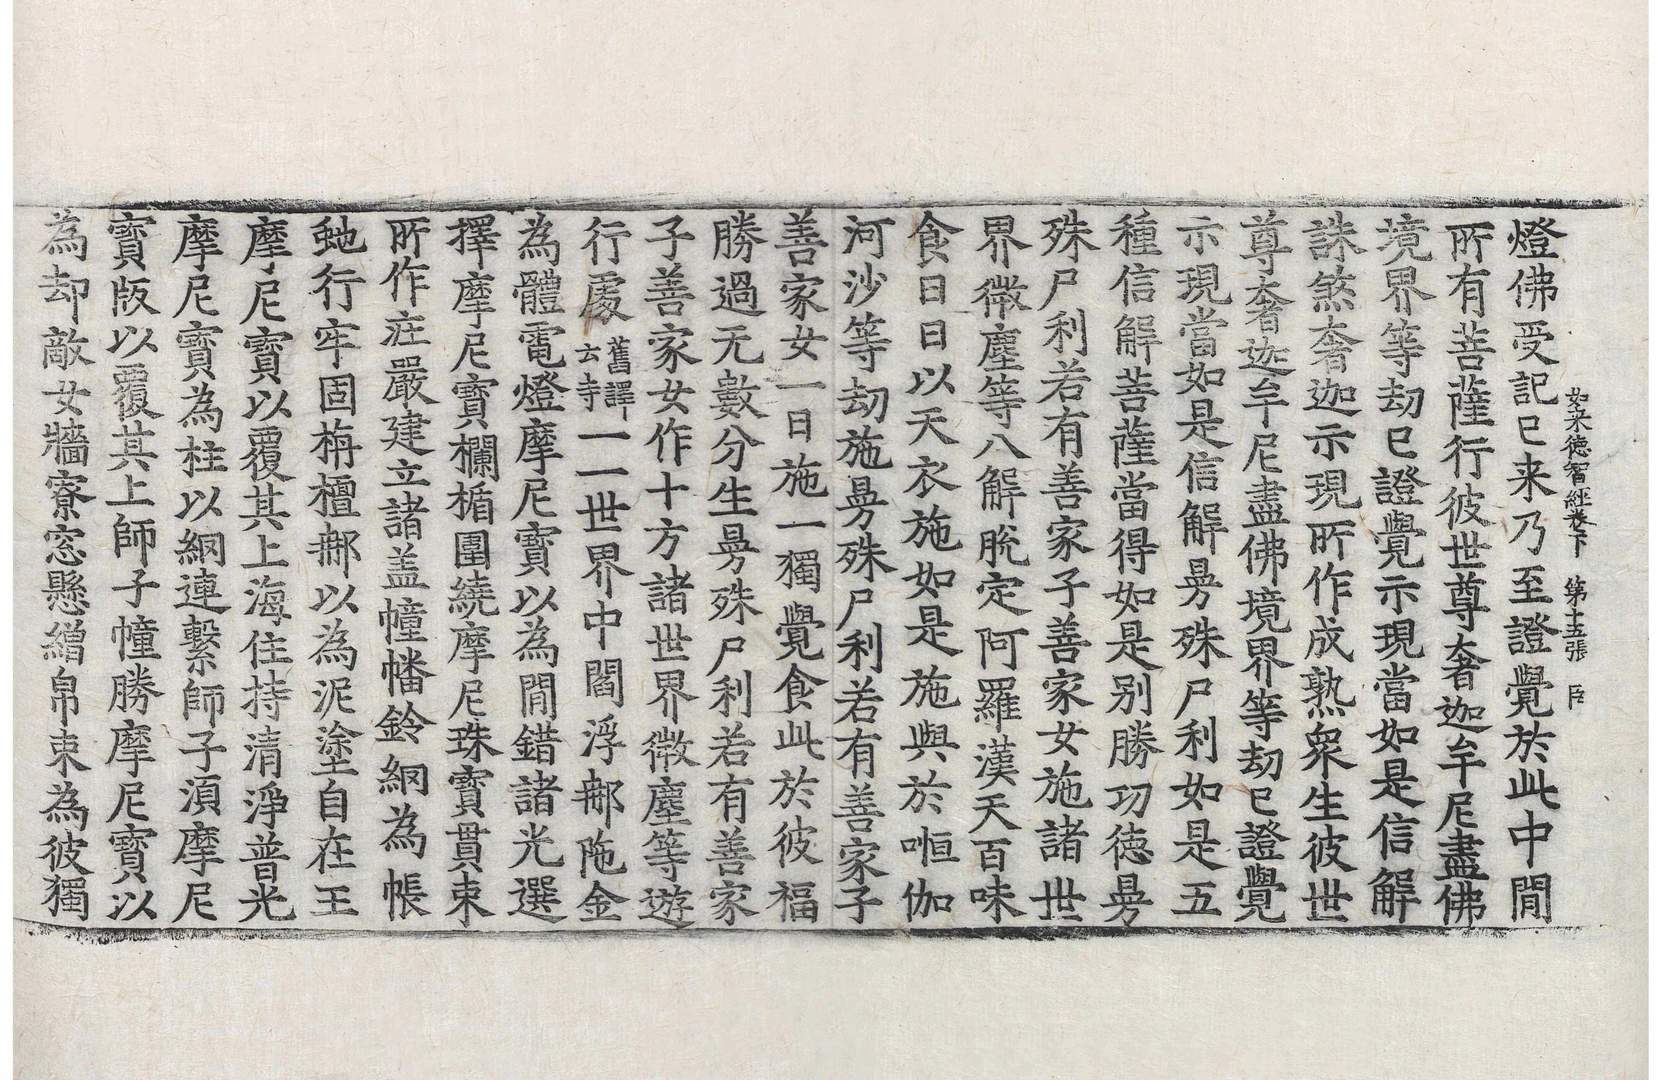 如来德智經卷下 第十五張 臣
燈佛受記已来乃至證覺於此中間
所有菩薩行彼世尊奢迦牟尼盡佛
境界等劫已證覺示現當如是信解
誅煞奢迦示現所作成熟衆生彼世
尊奢迦牟尼盡佛境界等劫已證覺
示現當如是信解曼殊尸利如是五
種信解菩薩當得如是别勝功徳曼
殊尸利若有善家子善家女施諸世
界微塵等八解脫定阿羅漢天百味
食日日以天衣施如是施與於恒伽
河沙等劫施曼殊尸利若有善家子
善家女一日施一獨覺食此於彼福
勝過无數分生曼殊尸利若有善家
子善家女作十方諸世界微塵等遊
行處舊譯云寺一一世界中閻浮那陁金
為體電燈摩尼寶以為間錯諸光選
擇摩尼寶欄楯圍繞摩尼珠寶貫束
所作庄嚴建立諸盖幢幡鈴網為帳
虵行牢固栴檀那以為泥塗自在王
摩尼寶以覆其上海住持清淨普光
摩尼寶為柱以網連繫師子湏摩尼
寶版以覆其上師子幢勝摩尼寶以
為却敵女牆寮窓懸繒帛束為彼獨